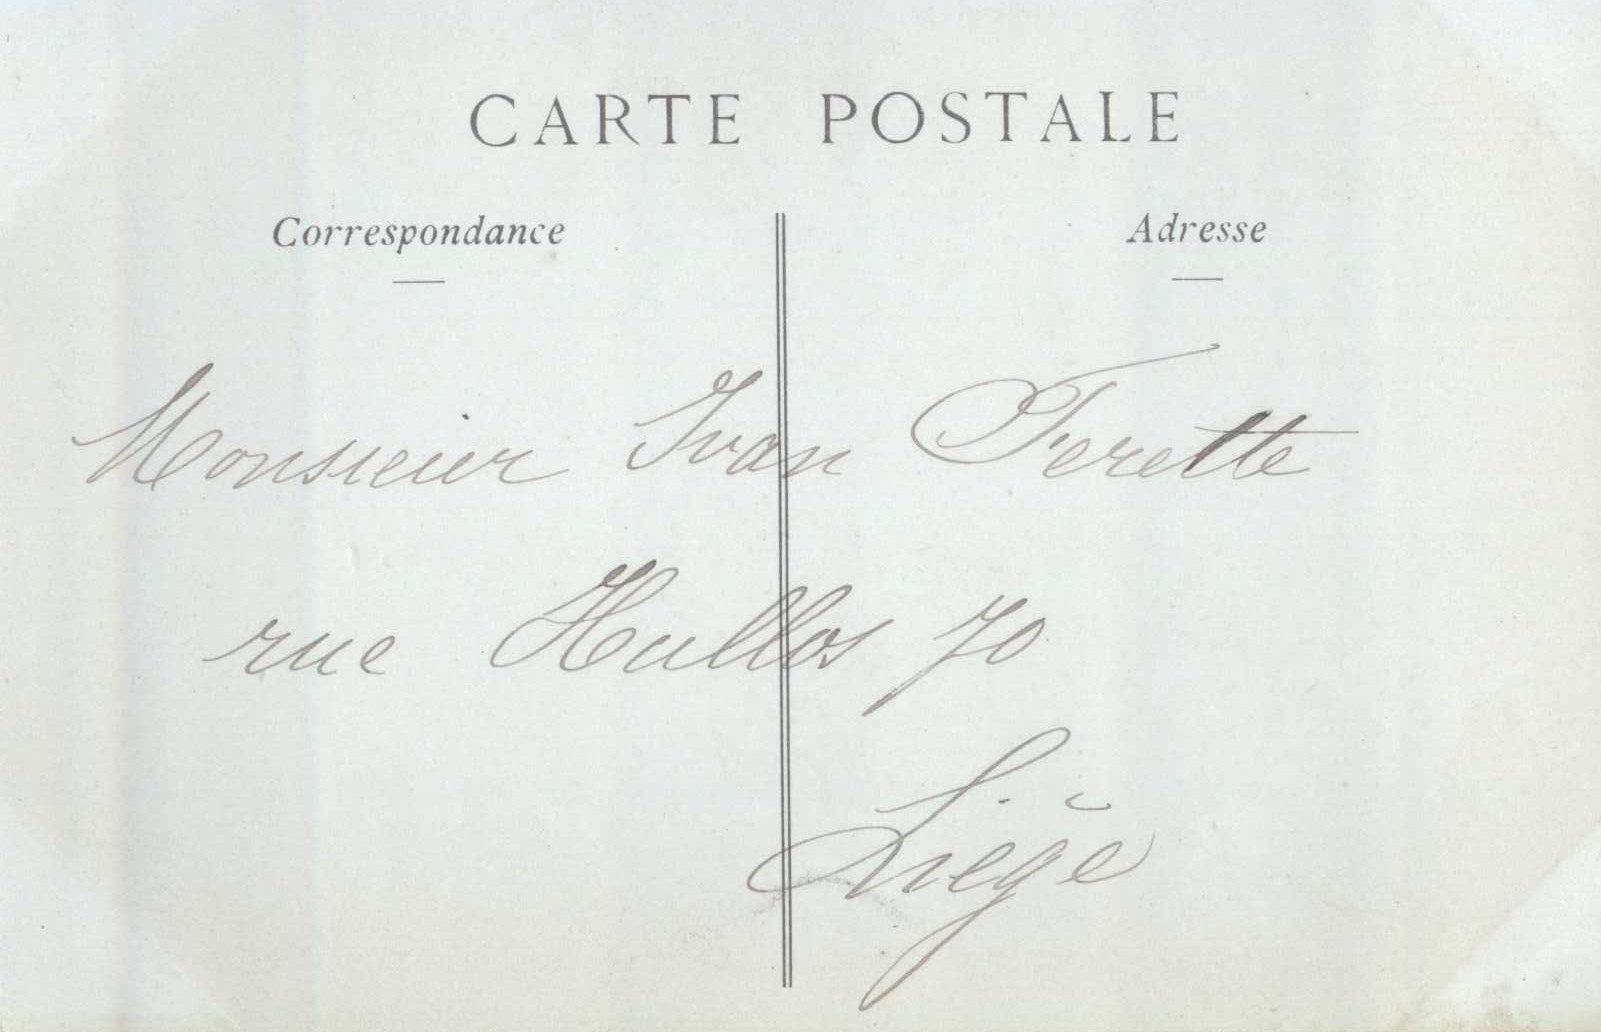 CARTE POSTALE
Correspondance
Adresse
Monsieur Ivan Ferette
rue Hullos 70
Liége